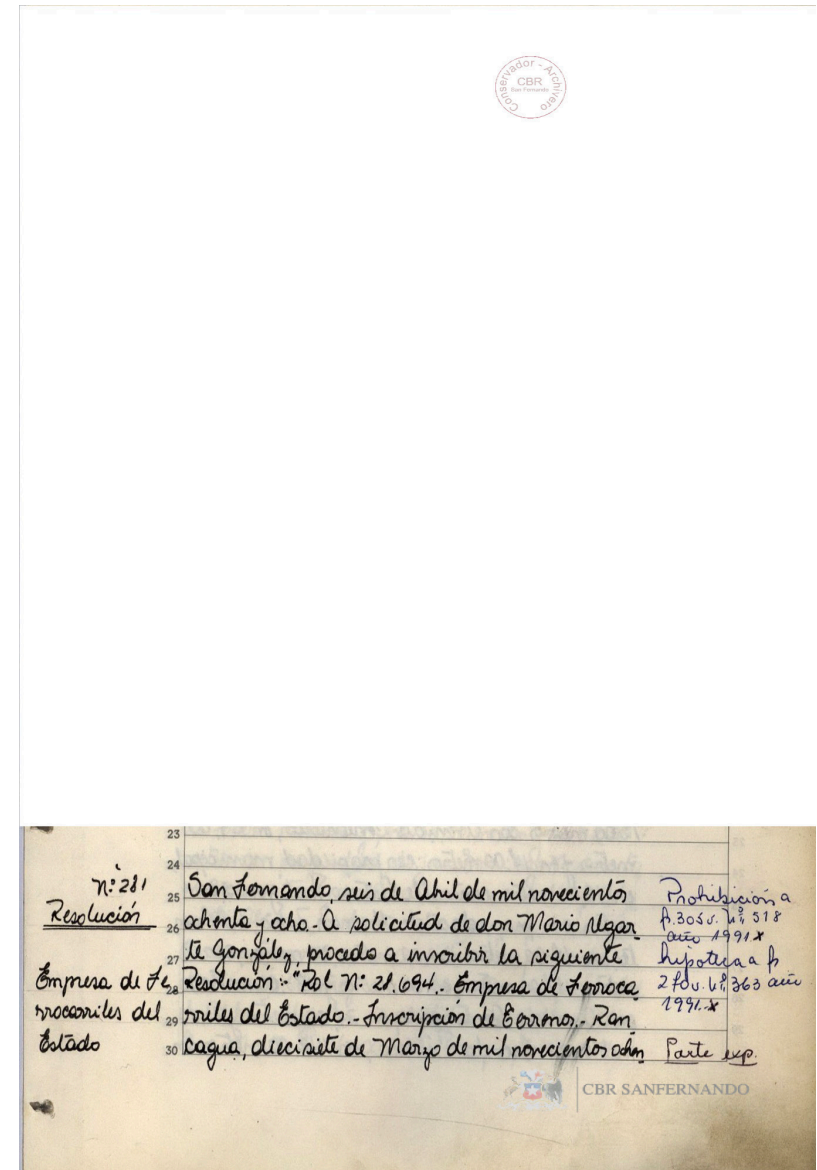 Conservador - Archivero
CBR
San Fernando
23
24
Nº 281
Resolución
Empresa de Fe
rrocarriles del
Estado
25 San Fernando, seis de Abril de mil novecientos
26 ochenta y ocho.- A solicitud de don Mario Ugar
27 te González, procedo a inscribir la siguiente
28 Resolución:- "Rol Nº 28.694.- Empresa de Ferroca
29 rriles del Estado.- Inscripción de Terrenos.- Ran
30 cagua, diecisiete de Marzo de mil novecientos ochen
Prohibición a
f. 305 v. Nº 518
año 1991 x
hipoteca a f
Nº 363 año
1991.- x
Parte exp.
CBR SANFERNANDO